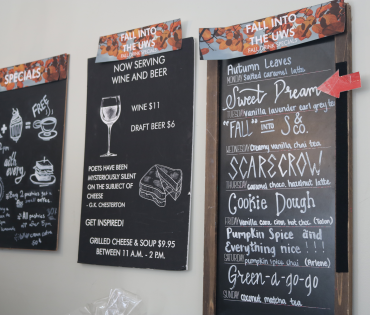 SPECIALS
FALL INTO
THE UWS
FALL DRINK SPECIALS
NOW SERVING
WINE AND BEER
WINE $11
DRAFT BEER $6
POETS HAVE BEEN
MYSTERIOUSLY SILENT
ON THE SUBJECT OF
CHEESE
- G.K. CHESTERTON
GET INSPIRED!
GRILLED CHEESE & SOUP $9.95
BETWEEN 11 A.M. - 2 P.M.
FALL INTO
THE UWS
FALL DRINK SPECIALS
Autumn Leaves
MONDAY: Salted caramel latte
Sweet Dream
TUESDAY: Vanilla lavender earl grey tea
"FALL" INTO S & Co.
WEDNESDAY: Creamy vanilla chai tea
SCARECROW
THURSDAY: caramel choco, hazelnut latte
Cookie Dough
FRIDAY: Vanilla cara, cinn hot choc
Pumpkin Spice and
Everything nice!!!
SATURDAY: pumpkin spice chai (Arlene)
Green-a-go-go
SUNDAY: coconut matcha tea